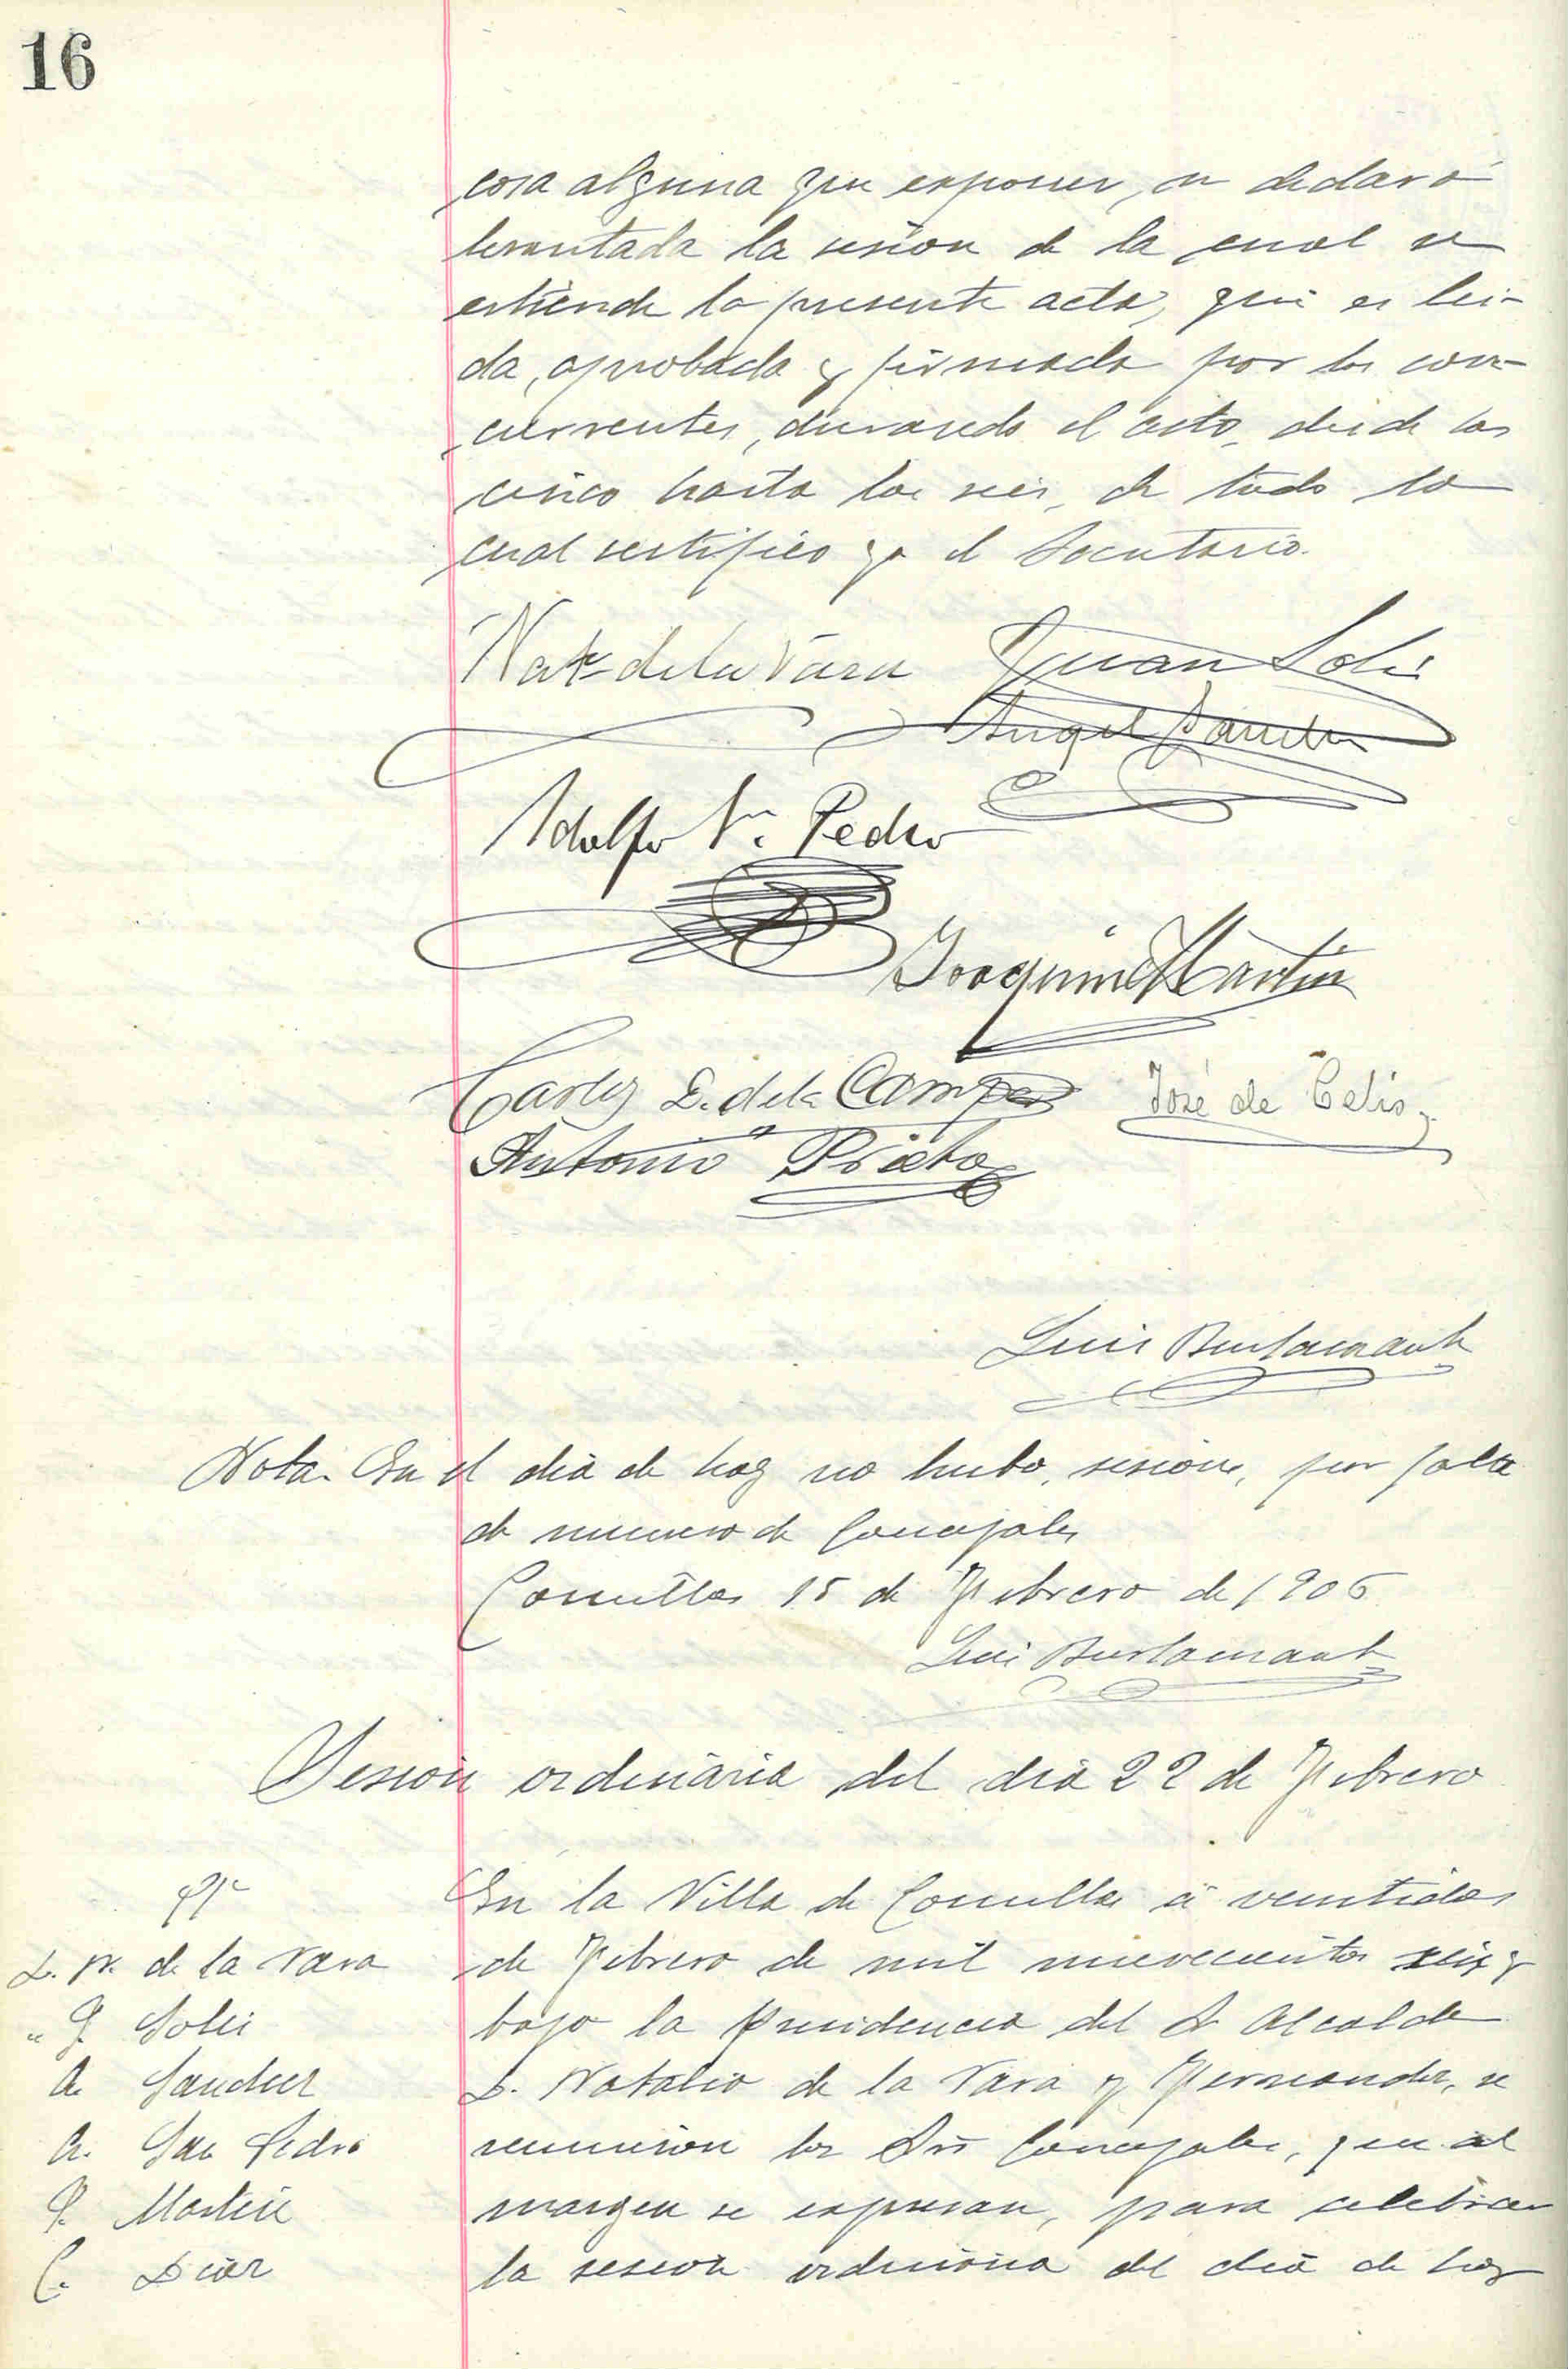 16
cosa alguna que exponer, se declaró
levantada la sesion de la cual se
estiende la presente acta, que es lei-
da, aprobada y firmada por los con-
currentes, durando el acto, desde las
cinco hasta las seis, de todo lo
cual certifico yo el Secretario.
Nat. de la Vara Juan Solis
Angel Sanchez
Adolfo Sn. Pedro
Joaquin Martin
Carlos D. de la Campa José de Celis
Antonio Prieto
Luis Bustamante
Nota. En el dia de hoy no hubo, sesion, por falta
de numero de Concejales
Comillas 15 de Febrero de 1906
Luis Bustamante
Sesion ordinaria del dia 22 de Febrero
En la Villa de Comillas á veintidos
de Febrero de mil novecientos seis y
bajo la Presidencia del Sr Alcalde
D. Natalio de la Vara y Fernandez, se
reunieron los Srs Concejales, que al
margen se expresan, para celebrar
la sesion ordinaria del dia de hoy
D. N. de la Vara
" J. Solis
A. Sanchez
A. San Pedro
J. Martin
C. Diaz